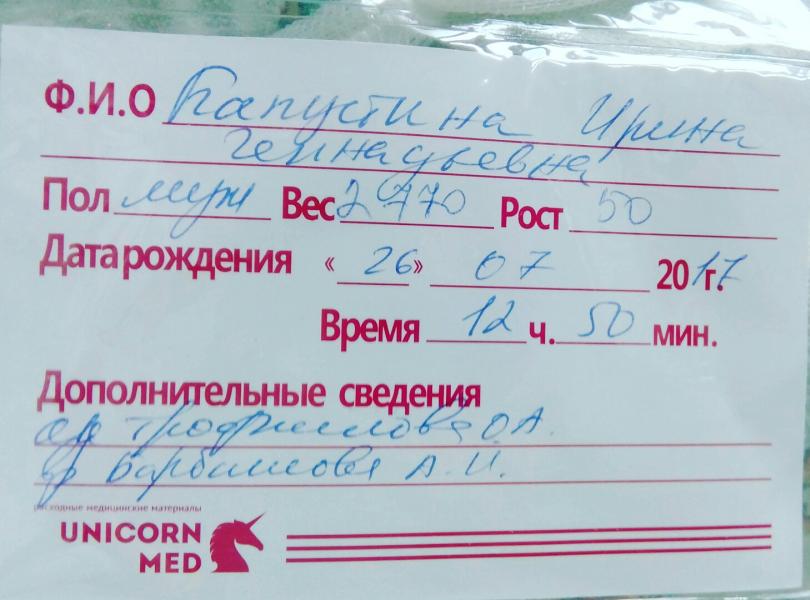 Ф.И.О Капустина Ирина
Геннадьевна
Пол муж Вес 2770 Рост 50
Дата рождения « 26 » 07 2017 г.
Время 12 ч. 50 мин.
Дополнительные сведения
О.А.
А.И.
расходные медицинские материалы
UNICORN
MED